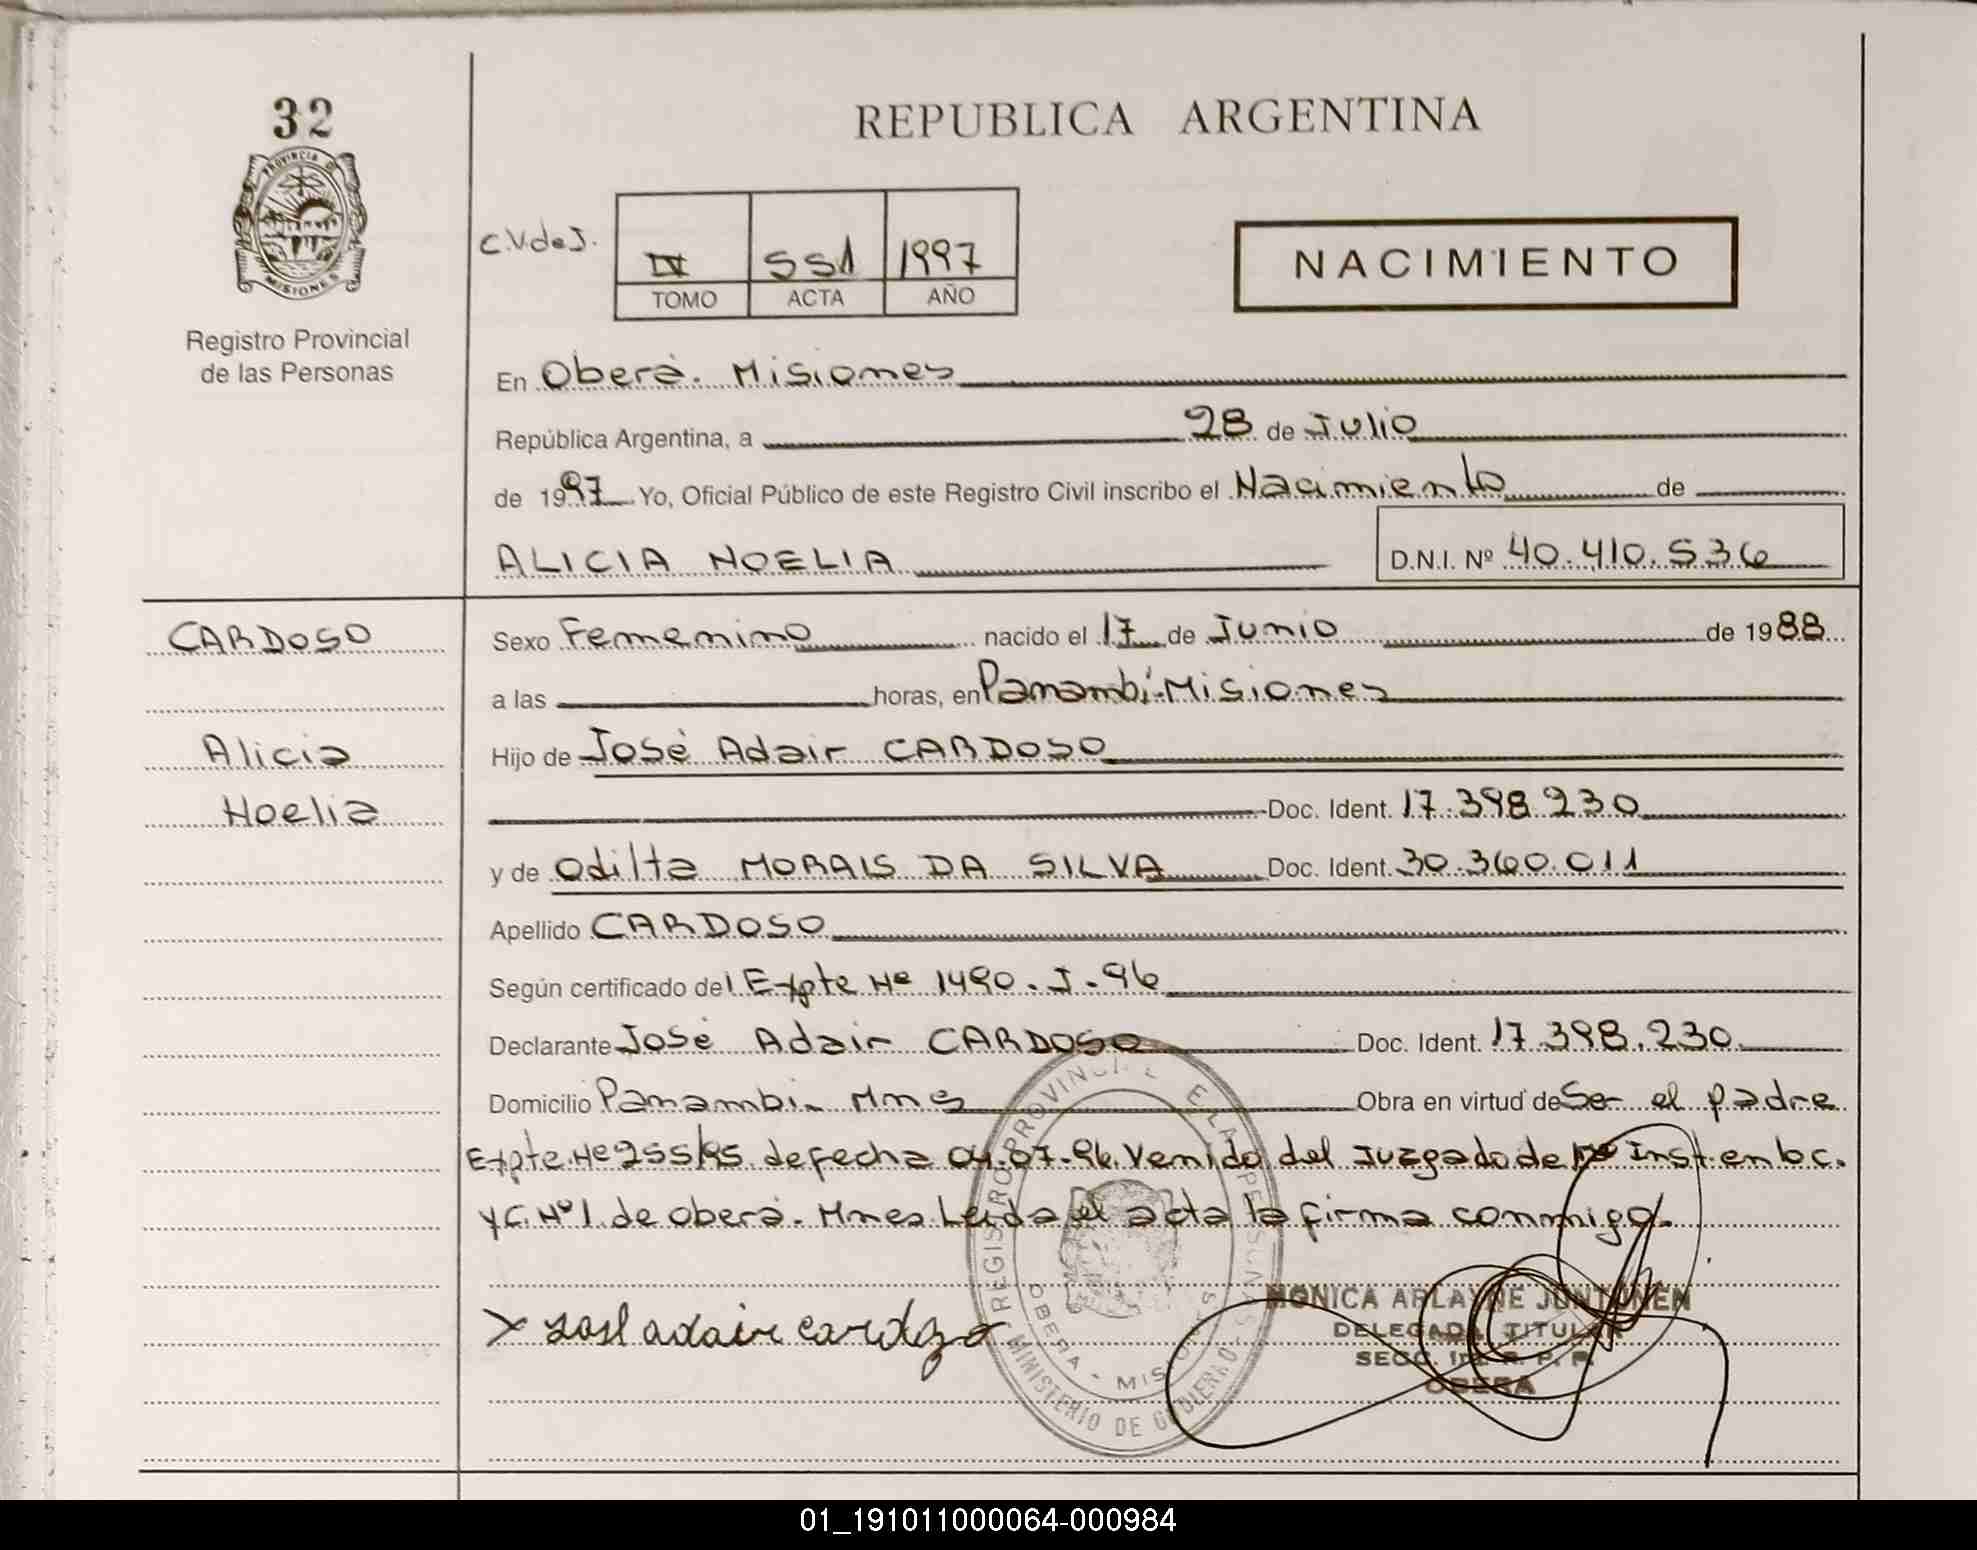 32
PROVINCIA DE
MISIONES
Registro Provincial
de las Personas
REPUBLICA ARGENTINA
C.V.deJ.
IV 551 1997
TOMO ACTA AÑO
NACIMIENTO
En Oberá. Misiones
República Argentina, a 28 de Julio
de 1997 Yo, Oficial Público de este Registro Civil inscribo el Nacimiento de
ALICIA NOELIA D.N.I. Nº 40.410.536
CARDOSO
Alicia
Noelia
Sexo Femenino nacido el 17 de Junio de 1988
a las horas, en Panambí-Misiones
Hijo de José Adair CARDOSO
Doc. Ident. 17.398.230
y de Odilta MORAIS DA SILVA Doc. Ident. 30.360.011
Apellido CARDOSO
Según certificado del Expte Nº 1490-J-96
Declarante José Adair CARDOSO Doc. Ident. 17.398.230
Domicilio Panambí- Mnes Obra en virtud de Ser el padre
Expte.Nº255/95 de fecha 04-07-96. Venido del Juzgado de 1ª Inst.en
y C.Nº1. de Oberá- Mnes. Leída el acta la firma conmigo.
REGISTRO PROVINCIAL DE LAS PERSONAS
OBERA - MISIONES
MINISTERIO DE GOBIERNO
José adair cardozo
MONICA ARLAYNE JUNTUNEN
DELEGADA TITULAR
SECC. R. P. P.
OBERA
01_191011000064-000984